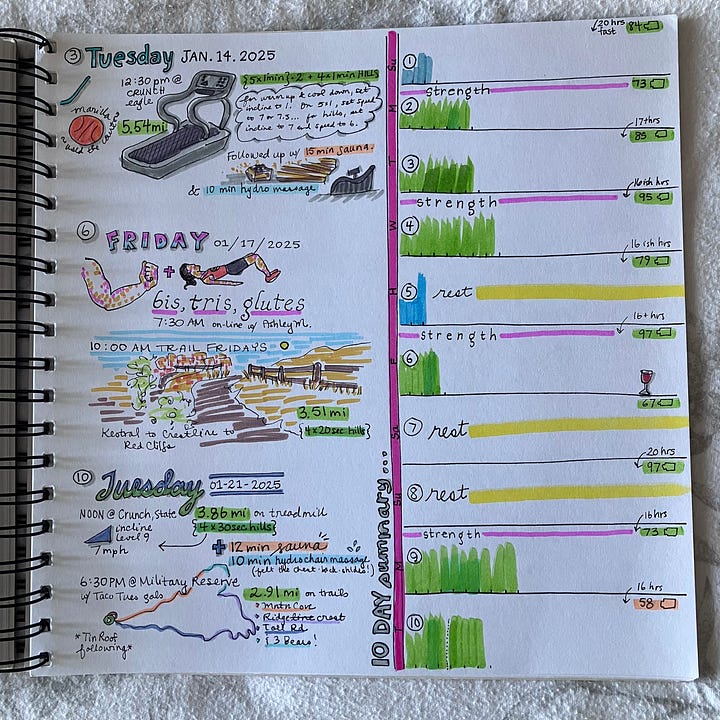 ③ Tuesday JAN. 14. 2025
12:30 pm @
CRUNCH
eagle
5.54 mi
{5x1min}-2 + 4x1min HILLS
for warm up & cool down, set
incline to 1. On 5x1, set speed
to 7 or 7.5... for hills, set
incline to 7 and speed to 6.
Followed up w/ 15 min sauna.
& 10 min hydro massage
⑥ FRIDAY 01/17/2025
+
bis, tris, glutes
7:30 AM on-line w/ Ashley M.
10:00 AM TRAIL FRIDAYS
3.51 mi
{4x20sec hills}
Kestral to Crestline to
Red Cliffs
⑩ Tuesday 01-21-2025
NOON @ Crunch, State
3.86 mi on treadmill
{4x30sec hills}
incline
level 9
7mph
+ 12 min sauna
10 min hydro chair massage
6:30 PM @ Military Reserve
w/ Taco Tues gals
2.91 mi on trails
• Mntn Cove
• Ridgeline crest
• Toll Rd
• {3 Bears!
*Tin Roof
following*
10 DAY summary...
Su
M
T
W
H
F
Sa
Su
M
T
20 hrs
fast
84
①
73
strength
②
17+hrs
85
③
16ish hrs
95
strength
④
16ish hrs
79
⑤ rest
16+hrs
97
strength
⑥
67
⑦ rest
20 hrs
97
⑧ rest
16 hrs
73
strength
⑨
16 hrs
58
⑩